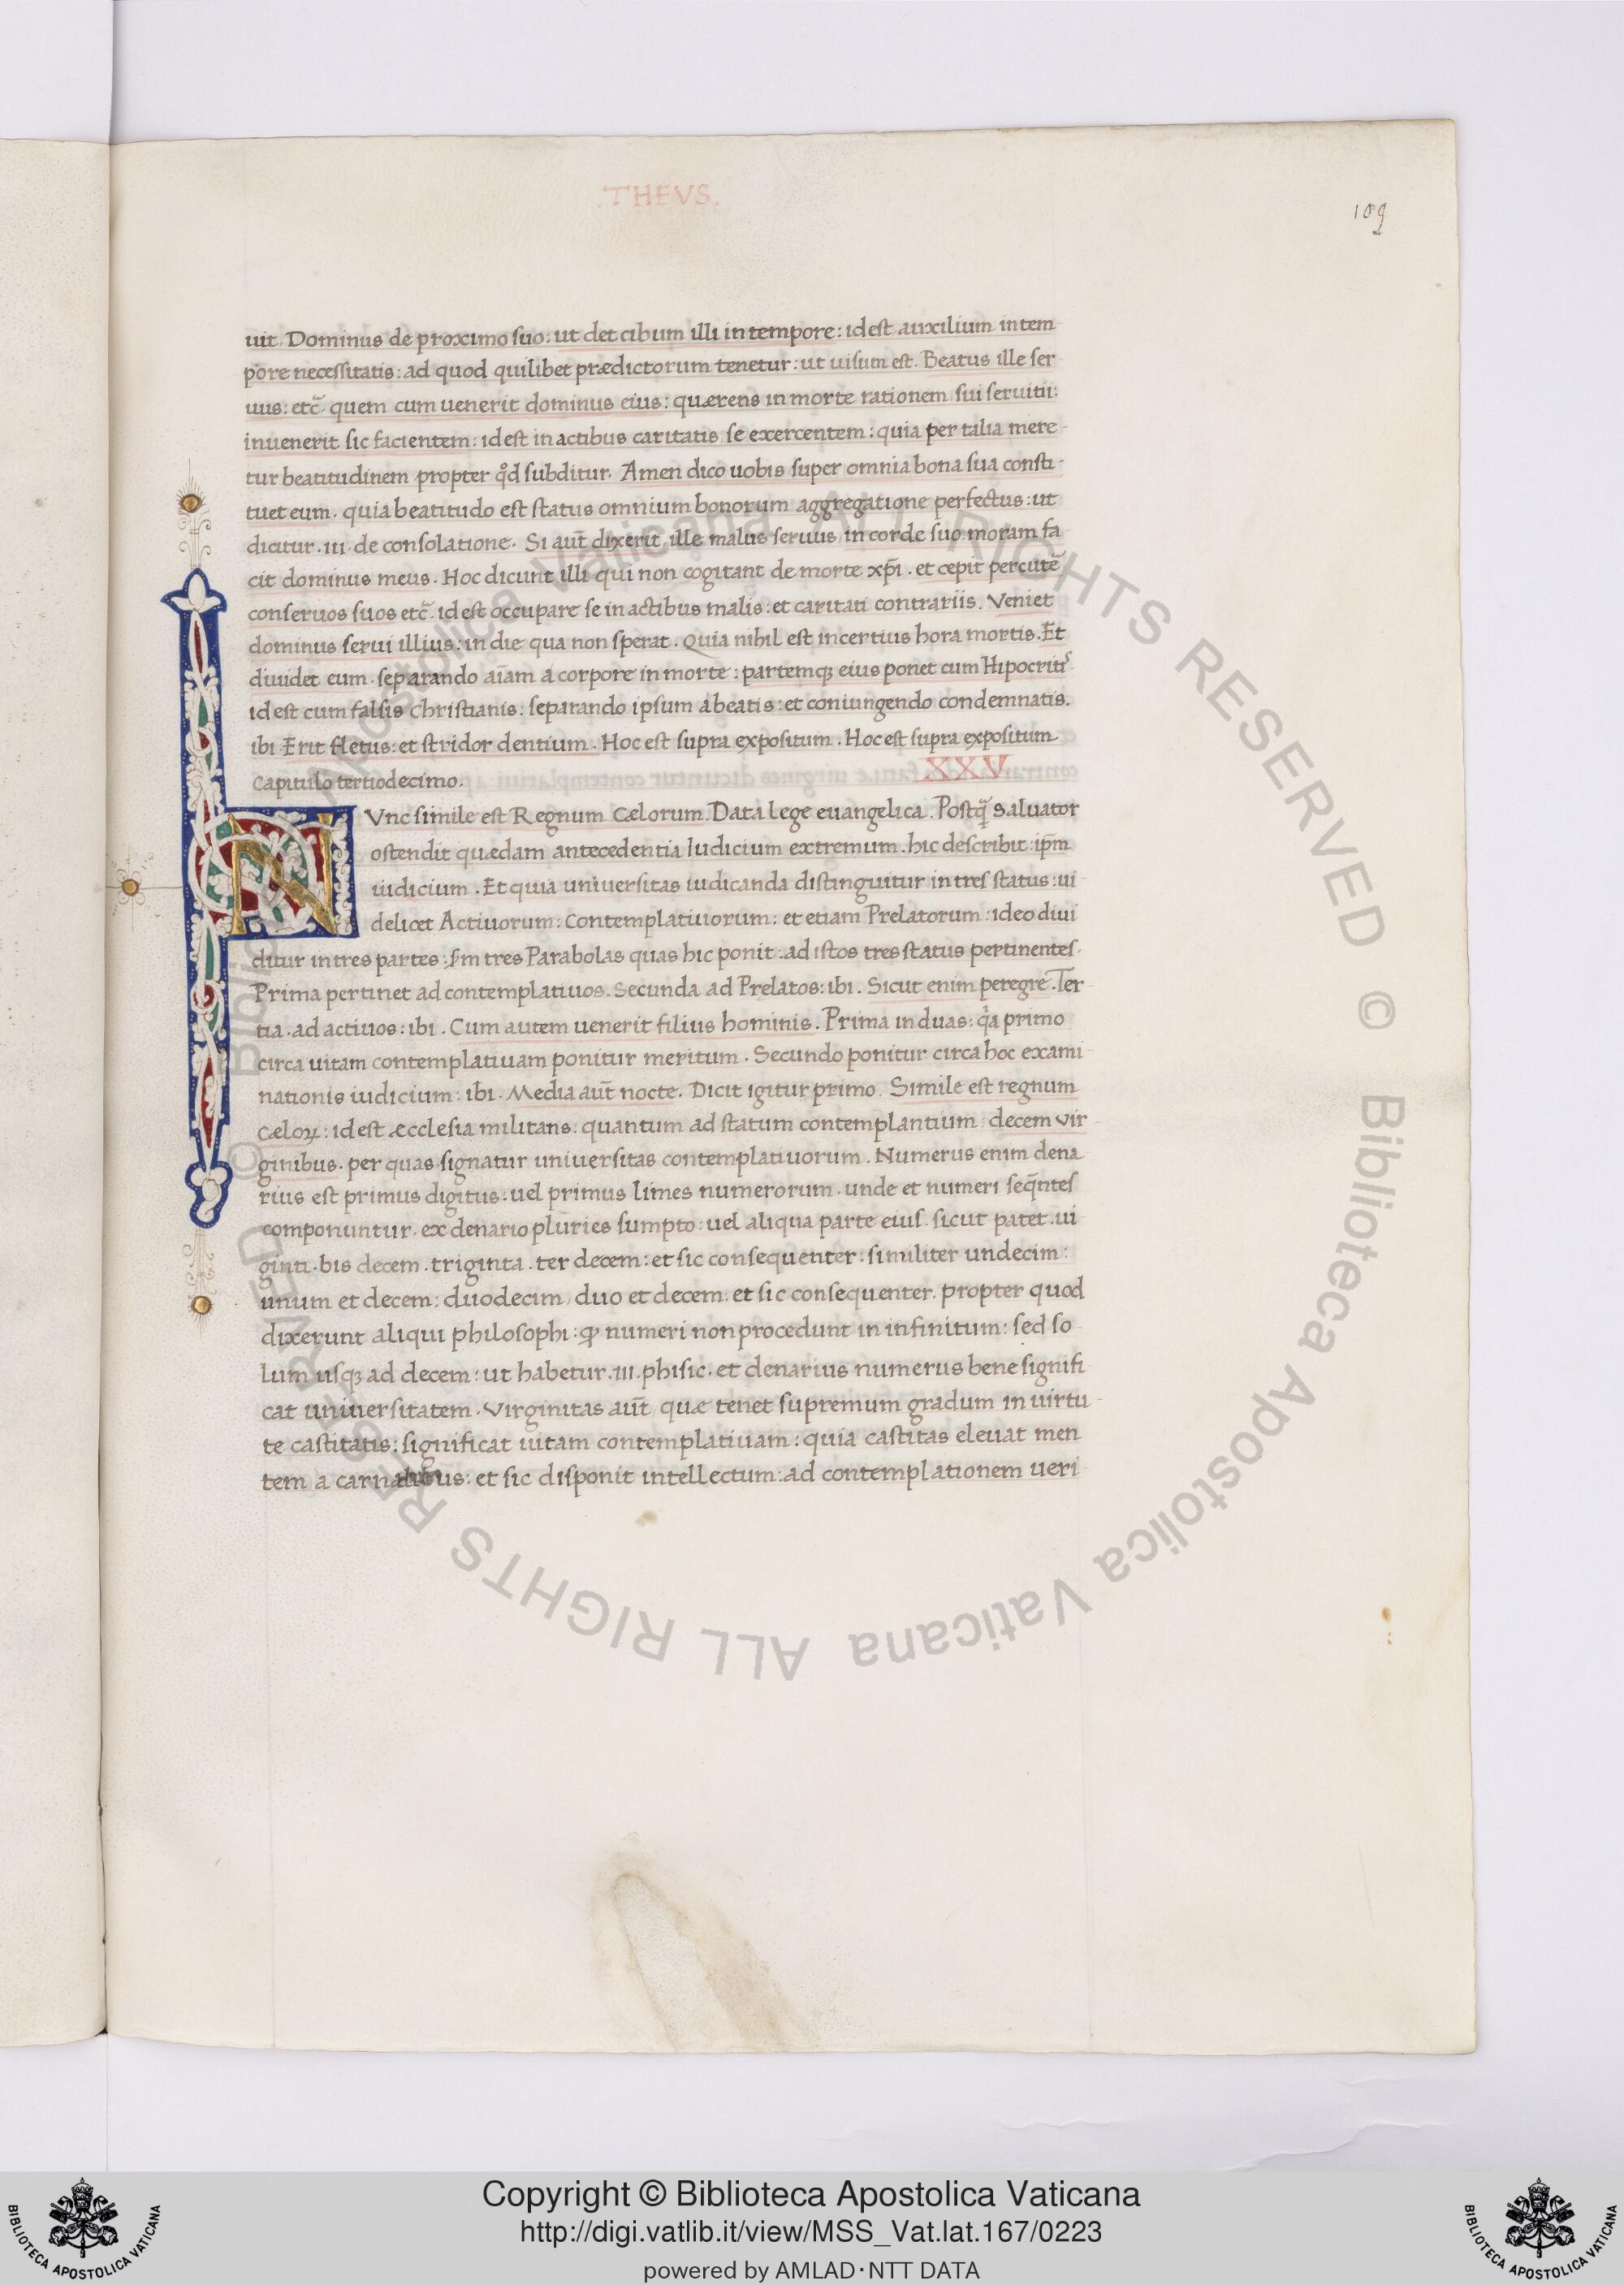 .THEVS.
109
uit. Dominus de proximo suo: ut det cibum illi in tempore: id est auxilium in tem
pore necessitatis: ad quod quilibet prædictorum tenetur: ut uisum est. Beatus ille ser-
uus: etc̃. quem cum uenerit dominus eius: quærens in morte rationem sui seruitii:
inuenerit sic facientem: id est in actibus caritatis se exercentem: quia per talia mere-
tur beatitudinem propter qđ subditur. Amen dico uobis super omnia bona sua consti-
tuet eum. quia beatitudo est status omnium bonorum aggregatione perfectus: ut
dicitur .iii. de consolatione. Si aut̃ dixerit ille malus seruus in corde suo moram fa
cit dominus meus. Hoc dicunt illi qui non cogitant de morte xp̃i. et cepit percutẽ
conseruos suos etc̃. id est occupare se in actibus malis: et caritati contrariis. Veniet
dominus serui illius: in die qua non sperat. Quia nihil est incertius hora mortis. Et
diuidet eum. separando aĩam a corpore in morte: partemqȝ eius ponet cum Hipocritꝭ
id est cum falsis Christianis: separando ipsum a beatis: et coniungendo condemnatis.
ibi Erit fletus: et stridor dentium. Hoc est supra expositum. Hoc est supra expositum.
Capitulo tertiodecimo.
XXV
N Vnc simile est Regnum Cælorum. Data lege euangelica. Postq̃ Saluator
ostendit quædam antecedentia Iudicium extremum. hic describit: ip̃m
iudicium. Et quia uniuersitas iudicanda distinguitur in tres status: ui-
delicet Actiuorum: Contemplatiuorum: et etiam Prelatorum: ideo diui
ditur in tres partes: s̃m tres Parabolas quas hic ponit: ad istos tres status pertinentes.
Prima pertinet ad contemplatiuos. Secunda ad Prelatos: ibi. Sicut enim peregre. Ter-
tia. ad actiuos: ibi. Cum autem uenerit filius hominis. Prima in duas: q̃a primo
circa uitam contemplatiuam ponitur meritum. Secundo ponitur circa hoc exami-
nationis iudicium: ibi. Media aut̃ nocte. Dicit igitur primo. Simile est regnum
Cæloꝝ: id est æcclesia militans: quantum ad statum contemplantium: decem vir-
ginibus. per quas signatur uniuersitas contemplatiuorum. Numerus enim dena
rius est primus digitus: uel primus limes numerorum. unde et numeri seq̃ntes
componuntur. ex denario pluries sumpto: uel aliqua parte eius. sicut patet. ui-
ginti. bis decem. triginta. ter decem: et sic consequenter: similiter undecim:
unum et decem: duodecim duo et decem. et sic consequenter. propter quod
dixerunt aliqui philosophi: ꝙ numeri non procedunt in infinitum: sed so
lum usqȝ ad decem: ut habetur .III. phisic. et denarius numerus bene signifi
cat uniuersitatem. Virginitas aut̃ quæ tenet supremum gradum in uirtu-
te castitatis: significat uitam contemplatiuam: quia castitas eleuat men
tem a carnalibus: et sic disponit intellectum: ad contemplationem ueri
© Biblioteca Apostolica Vaticana ALL RIGHTS RESERVED © Biblioteca Apostolica Vaticana ALL RIGHTS RESERVED
Copyright © Biblioteca Apostolica Vaticana
http://digi.vatlib.it/view/MSS_Vat.lat.167/0223
powered by AMLAD·NTT DATA
BIBLIOTECA APOSTOLICA VATICANA
BIBLIOTECA APOSTOLICA VATICANA